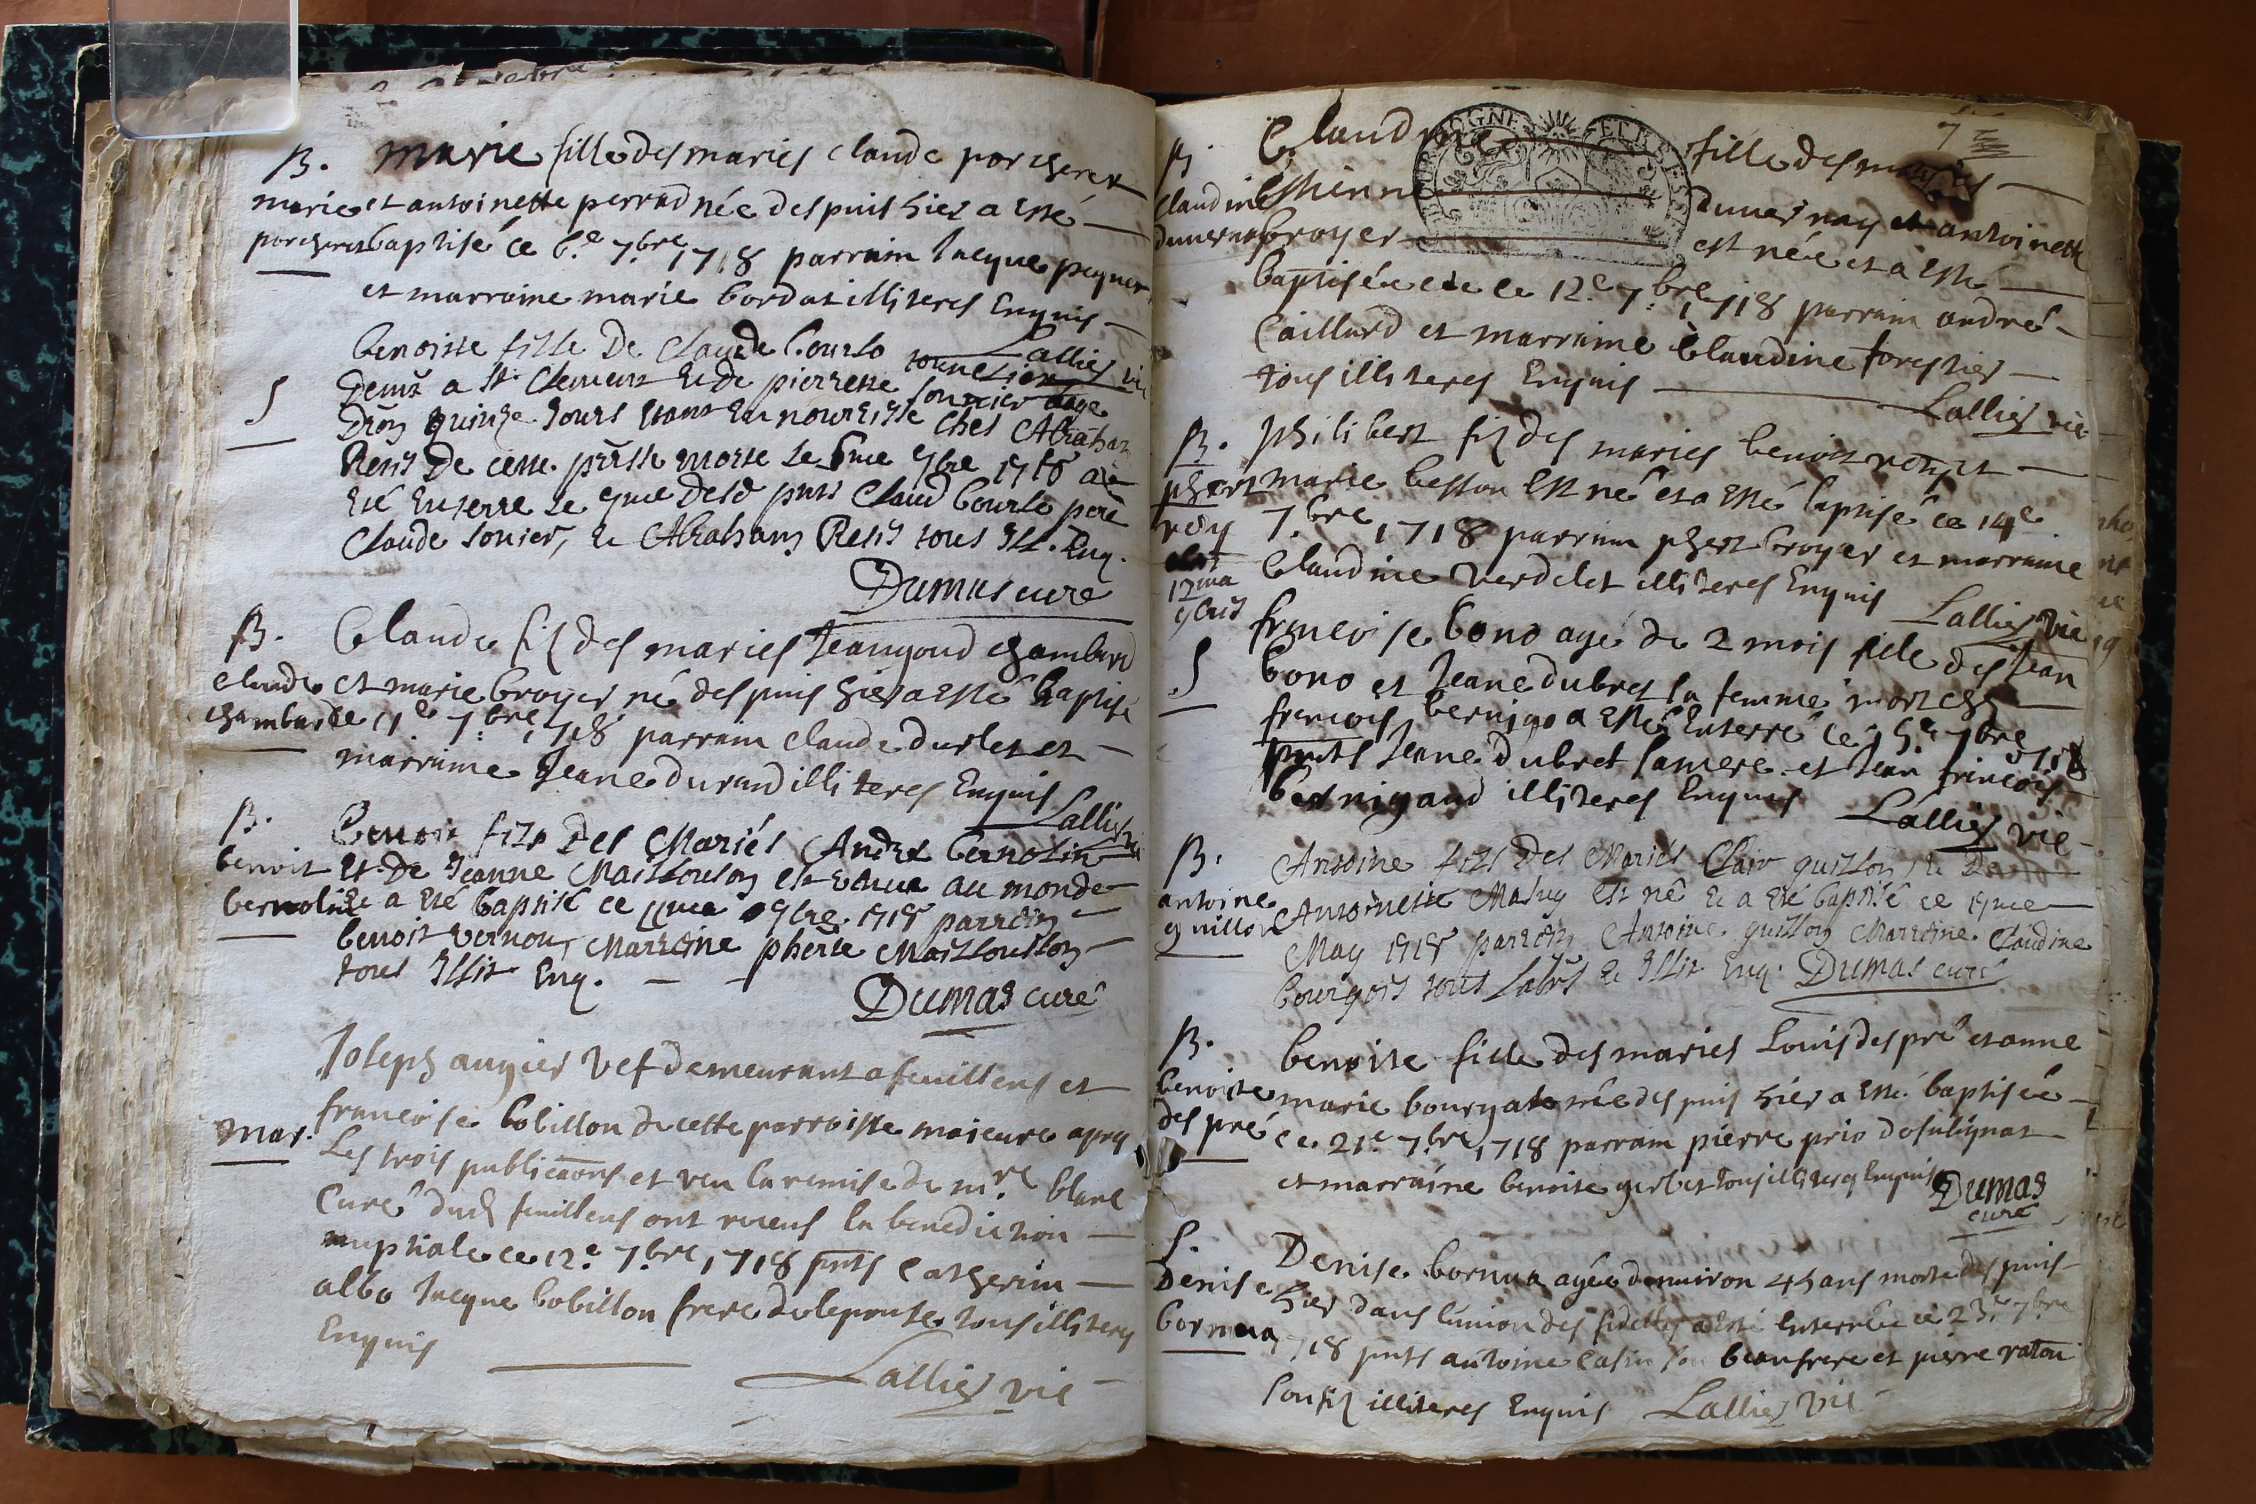 B. Marie fille des mariés claude porcheret
marie et antoinette perrad née despuis hier a esté
porcheret baptisé ce 6.e 7.bre 1718 parrain Jacque
et marraine marie bordat illiteres Enquis
Lallier vic
benoiste fille De Claude bourlo
S Demt a St. Clement Et de pierrette
quinze Jours Etant En nourisse ches Abraham
Resis De cette prsse morte le 7bre 1718 a
Eté Enterre le Claud bourlo pere
Claude sonier, & Abraham Resis tous Ill. Enq.
Dumas curé
B. Claude fiz des maries chambard
claude et marie broyer né despuis hier a esté baptisé
chambard ce 11e 7.bre 1718 parrain claude durlet et
marraine Jeane durand illiteres Enquis
Lallier vic
B. Benoit fils Des Mariés André bernolin
benoit Et De Jeanne est venu au monde
bernolin Et a Eté baptisé ce 7bre 1718 parrein
benoit vernou, Marreine
tous Illit Enq.
Dumas curé
Joseph augier vef demeurant a feuillens et
francoise bobillon de cette parroisse majeure apres
mar. Les trois publicaons et veu la remise de mre blanc
Curé dud feuillens ont receus la benediction
nuptiale ce 12.e 7.bre 1718 pnts catherin
albo Jacque bobillon frere de lepouse tous illiteres
Enquis
Lallier vic
7
B. Claudine fille des maries
claudine Estienne duvernay et antoinette
duvernay broyer est née et a Esté
baptisée ce 12.e 7.bre 1718 parrain andré
Caillard et marraine Claudine forestier
tous illiteres Enquis
Lallier vic
B. philibert fiz des maries benoit
phbert marie besson est né et a Esté baptisé ce 14e
7.bre 1718 parrain phbert broyer et marraine
12ma Claudine verdelet illiteres Enquis
Lallier vic
francoise bono agé de 2 mois fille des Jean
S bono et Jeane dubret sa femme mort chz
francois bernigo a Esté Enterré ce 15.e 7bre 1718
pnts Jeane dubret sa mere et Jean francois
bernigaud illiteres Enquis
Lallier vic
B. Antoine fils Des Mariés Clair quillon, &
antoine Antoinette est né & a Eté baptisé ce
quillon May 1718 parrein Antoine quillon Marreine Claudine
bourgois tous & Illit Enq. Dumas curé
B. benoite fille des maries Louis despré et anne
benoite marie bourgat née despuis hier a Esté baptiseé
des pré ce 21.e 7.bre 1718 parrain pierre prio de sulignat
et marraine benoite gerbet tous illiteres Enquis
Dumas
curé
S. Denise bornua agée denuiron 45 ans morte despuis
Denise hier dans lunion des fidelles a Esté Enterrée ce 23.e 7.bre
bornua 1718 pnts antoine Casin son beaufrere et pierre raton
son fiz illiteres Enquis Lallier vic